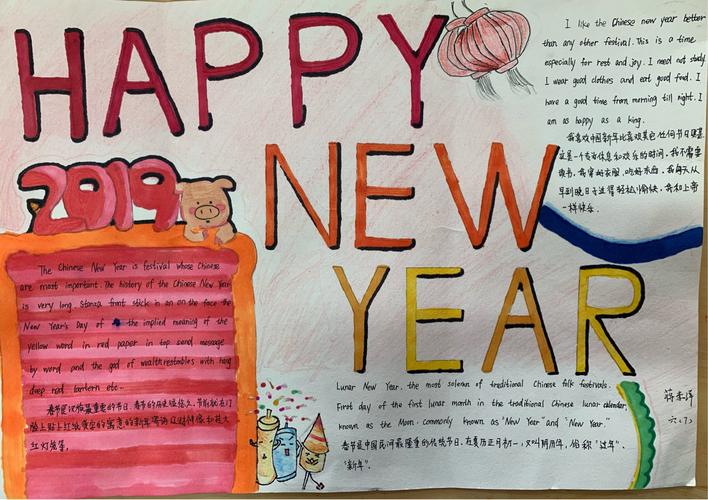 HAPPY
NEW
YEAR
2019
I like the Chinese new year better
than any other festival. This is a time
especially for rest and joy. I need not study
I wear good clothes and eat good food. I
have a good time from morning till night. I
am as happy as a king.
我喜欢中国新年比喜欢其它任何节日更甚
这是一个专为休息和欢乐的时间,我不需要
读书,我穿好衣服,吃好东西,我每天从
早到晚日子过得轻松愉快,我和上帝
一样快乐.
The Chinese New Year is festival whose Chinese
are most important. The history of the Chinese New Year
is very long. Stanza front stick in an on the face the
New Year's Day of the implied meaning of the
yellow word in red paper in top send message
by word and the god of wealth with
deep red lantern etc.
春节是汉族最重要的节日.春节的历史很悠久,节前就在门
脸上贴上红纸黄字的寓意的新年寄语
红灯笼等.
Lunar New Year. the most solemn of traditional Chinese folk festivals.
First day of the first lunar month in the traditional Chinese lunar calendar,
known as the Moon. commonly known as "New Year" and "New Year."
春节是中国民间最隆重的传统节日.在夏历正月初一,又叫阴历年,俗称"过年".
"新年".
六(7)